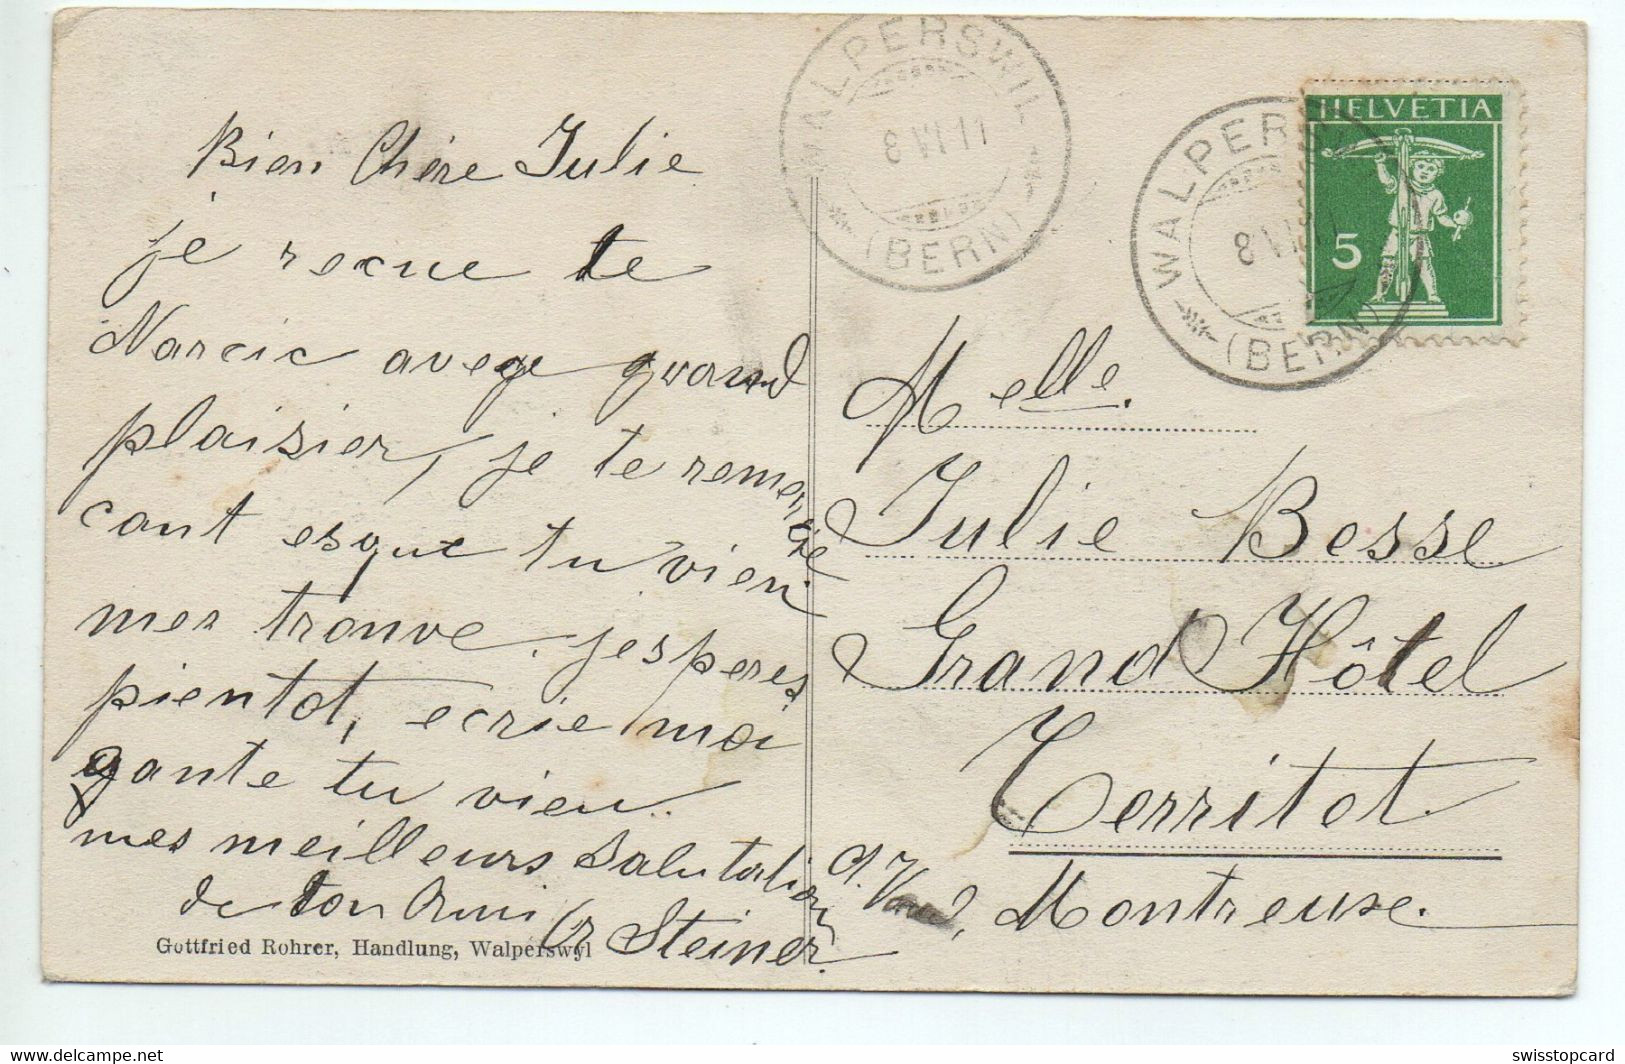 Bien Chère Julie
je recue te
Narcic avege grand
plaisier, je te remer
cie
cant esque tu vien
mer trouve. jesperes
pientot, ecrie moi
gante tu vien.
mes meilleurs Salutation
de ton Ami Gr Steiner.
Gottfried Rohrer, Handlung, Walperswyl
WALPERSWIL
8 VI 11
(BERN)
WALPERSWIL
8 VI 11
(BERN)
HELVETIA
5
Melle.
Julie Besse
Grand Hôtel
Territet.
Ct. Vaud, Montreuse.
swisstopcard